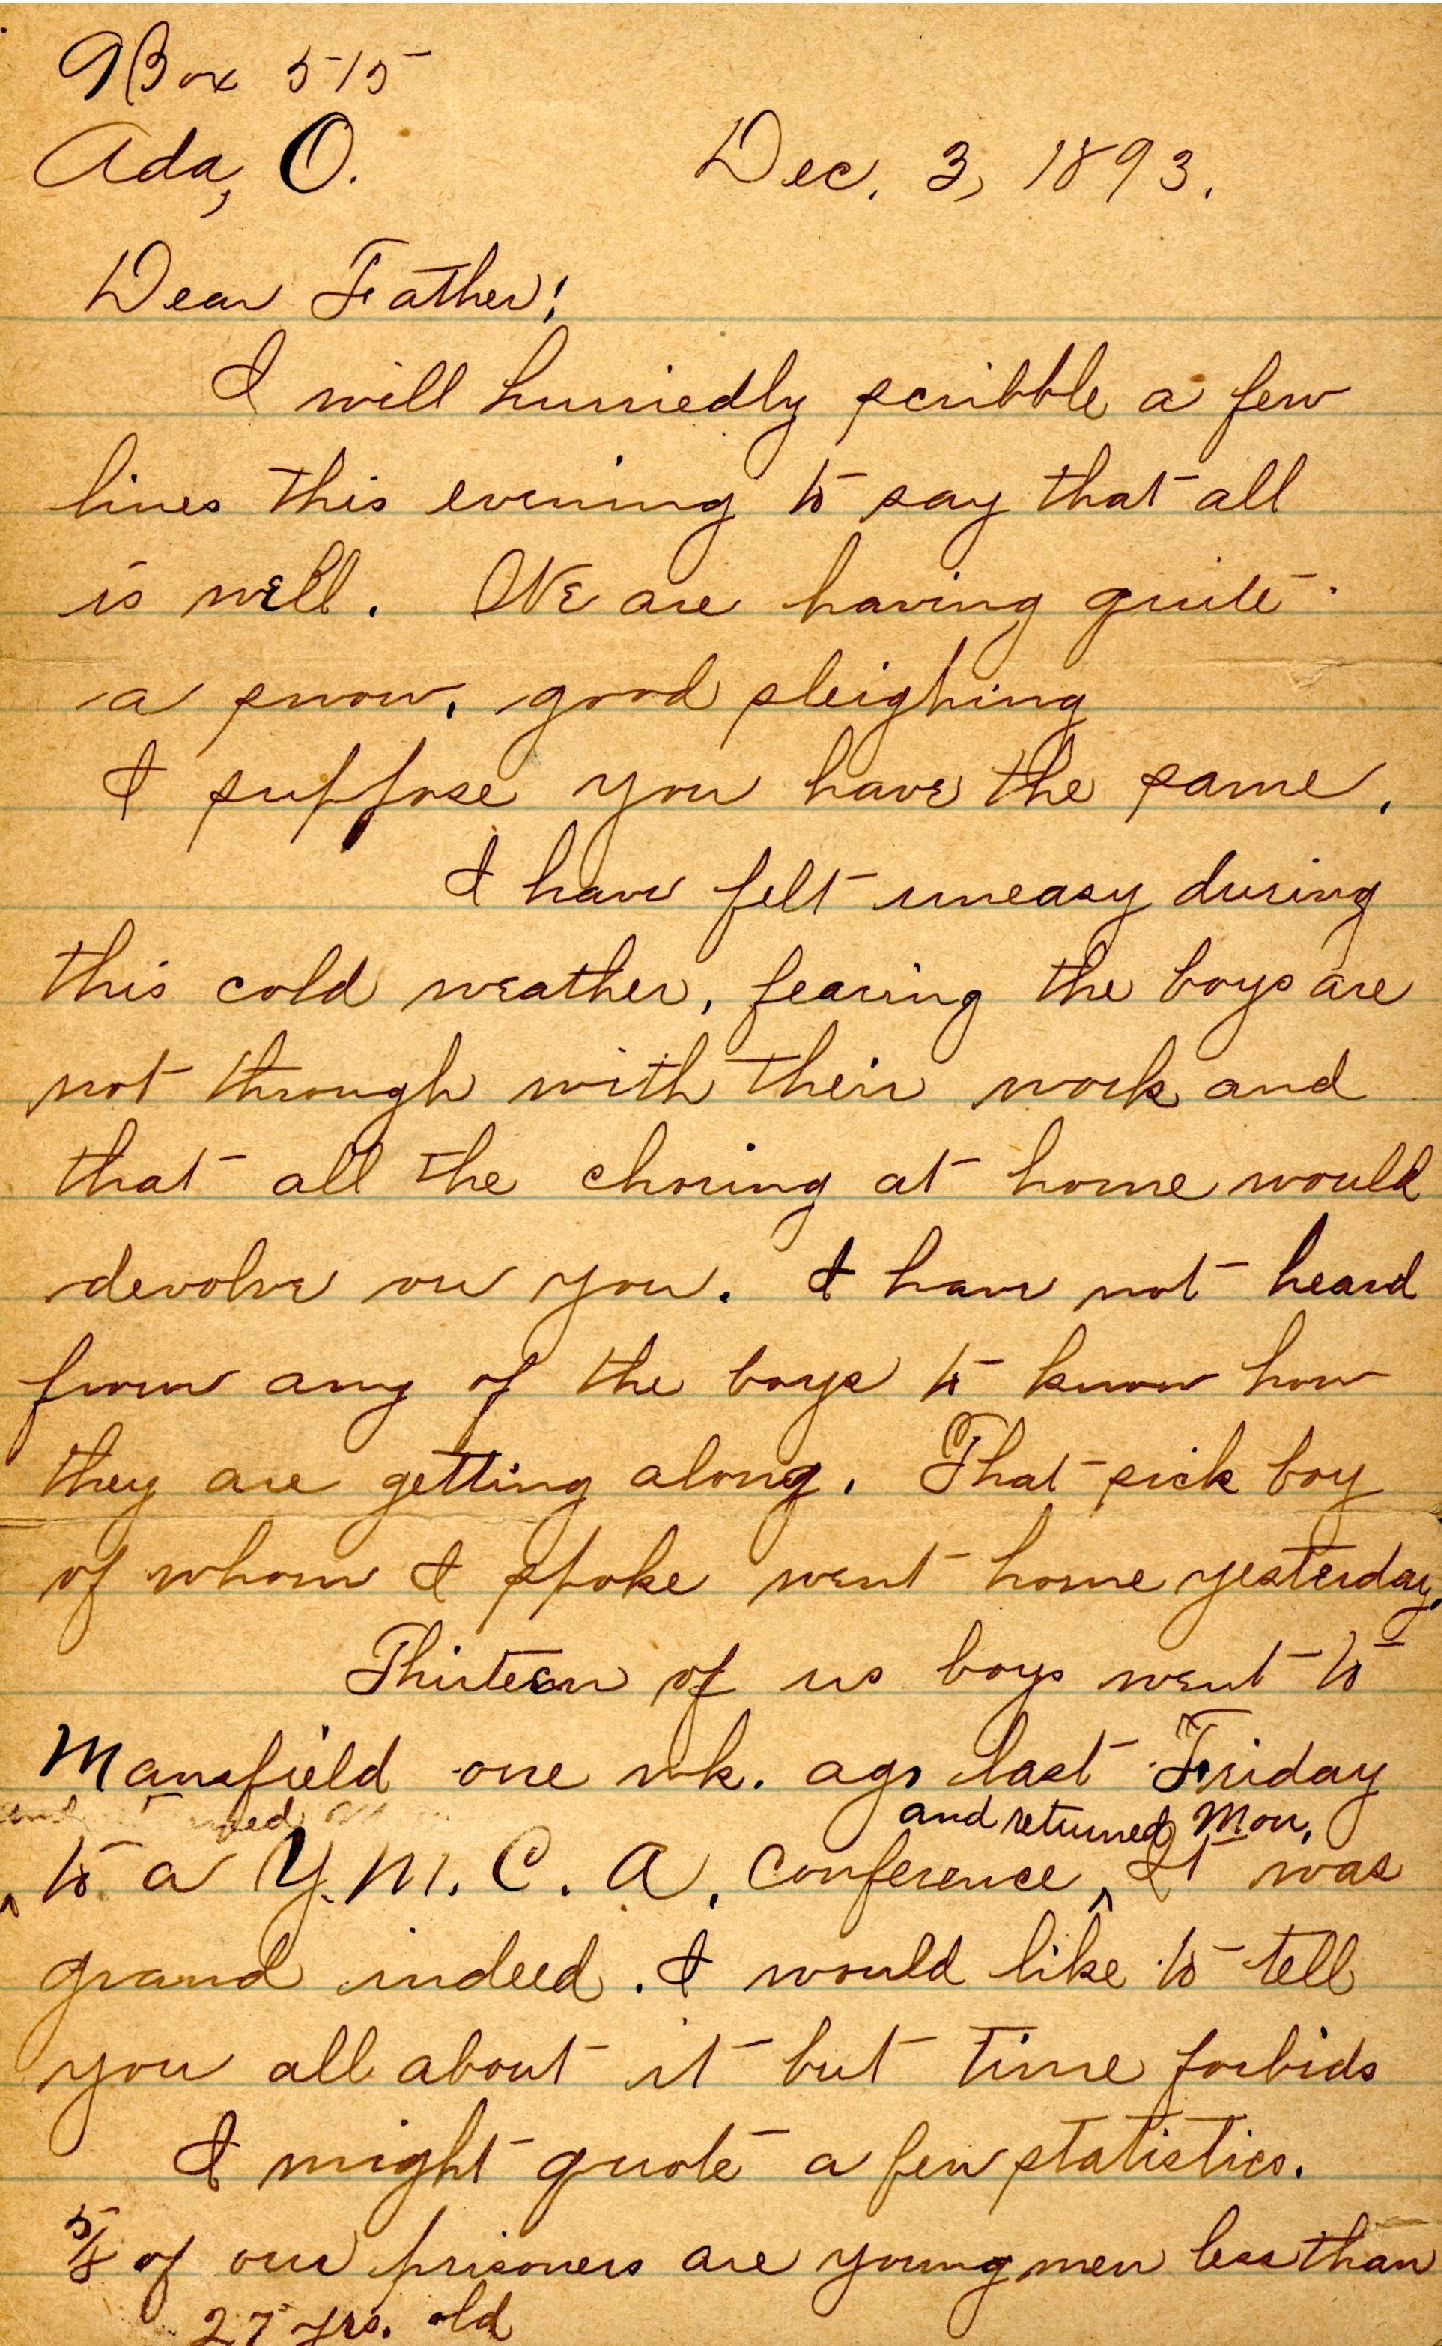 Box 515
Ada, O. Dec. 3, 1893.
Dear Father!
I will hurriedly scribble a few
lines this evening to say that all
is well. We are having quite
a snow, good sleighing
I suppose you have the same.
I have felt uneasy during
this cold weather, fearing the boys are
not through with their work and
that all the choring at home would
devolve on you. I have not heard
from any of the boys to know how
they are getting along. That sick boy
of whom I spoke went home yesterday.
Thirteen of us boys went to
Mansfield one wk. ago last Friday
and returned Mon.
to a Y.M.C.A. Conference ^ It was
grand indeed. I would like to tell
you all about it but time forbids
I might quote a few statistics.
5/8 of our prisoners are young men less than
27 yrs. old